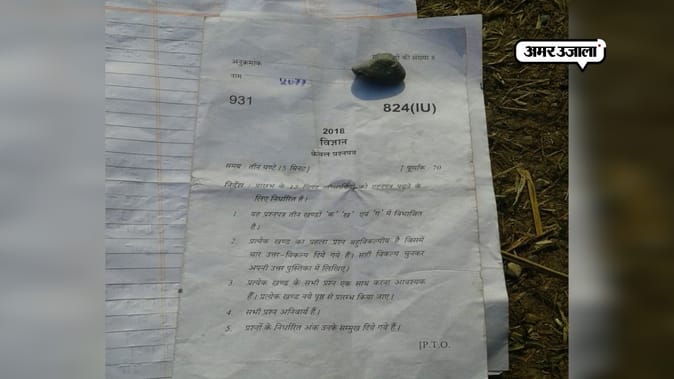 अमर उजाला
अनुक्रमांक
की संख्या 8
नाम
931
824(IU)
2018
विज्ञान
केवल प्रश्नपत्र
समय : तीन घण्टे 15 मिनट] [ पूर्णांक : 70
निर्देश : प्रारम्भ के 15 मिनट परीक्षार्थियों को प्रश्नपत्र पढ़ने के
लिए निर्धारित हैं।
1. यह प्रश्नपत्र तीन खण्डों 'क' 'ख' एवं 'ग' में विभाजित
है।
2. प्रत्येक खण्ड का पहला प्रश्न बहुविकल्पीय है जिसमें
चार उत्तर-विकल्प दिये गये हैं। सही विकल्प चुनकर
अपनी उत्तर पुस्तिका में लिखिए।
3. प्रत्येक खण्ड के सभी प्रश्न एक साथ करना आवश्यक
है। प्रत्येक खण्ड नये पृष्ठ से प्रारम्भ किया जाए।
4. सभी प्रश्न अनिवार्य हैं।
5. प्रश्नों के निर्धारित अंक उनके सम्मुख दिये गये हैं।
[P.T.O.